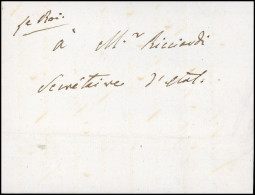 Le Roi.
à M.r Ricciardi
Secrétaire d'état.